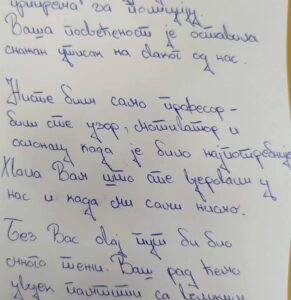 припрема за полицију.
Ваша посвећеност је оставила
снажан утисак на сваког од нас.
Нисте били само професор -
били сте узор, мотиватор и
ослонац када је било најпотребније
Хвала Вам што сте веровали у
нас и када ми сами нисмо.
Без Вас овај пут би био
много тежи. Ваш рад ћемо
увијек памтити са великим